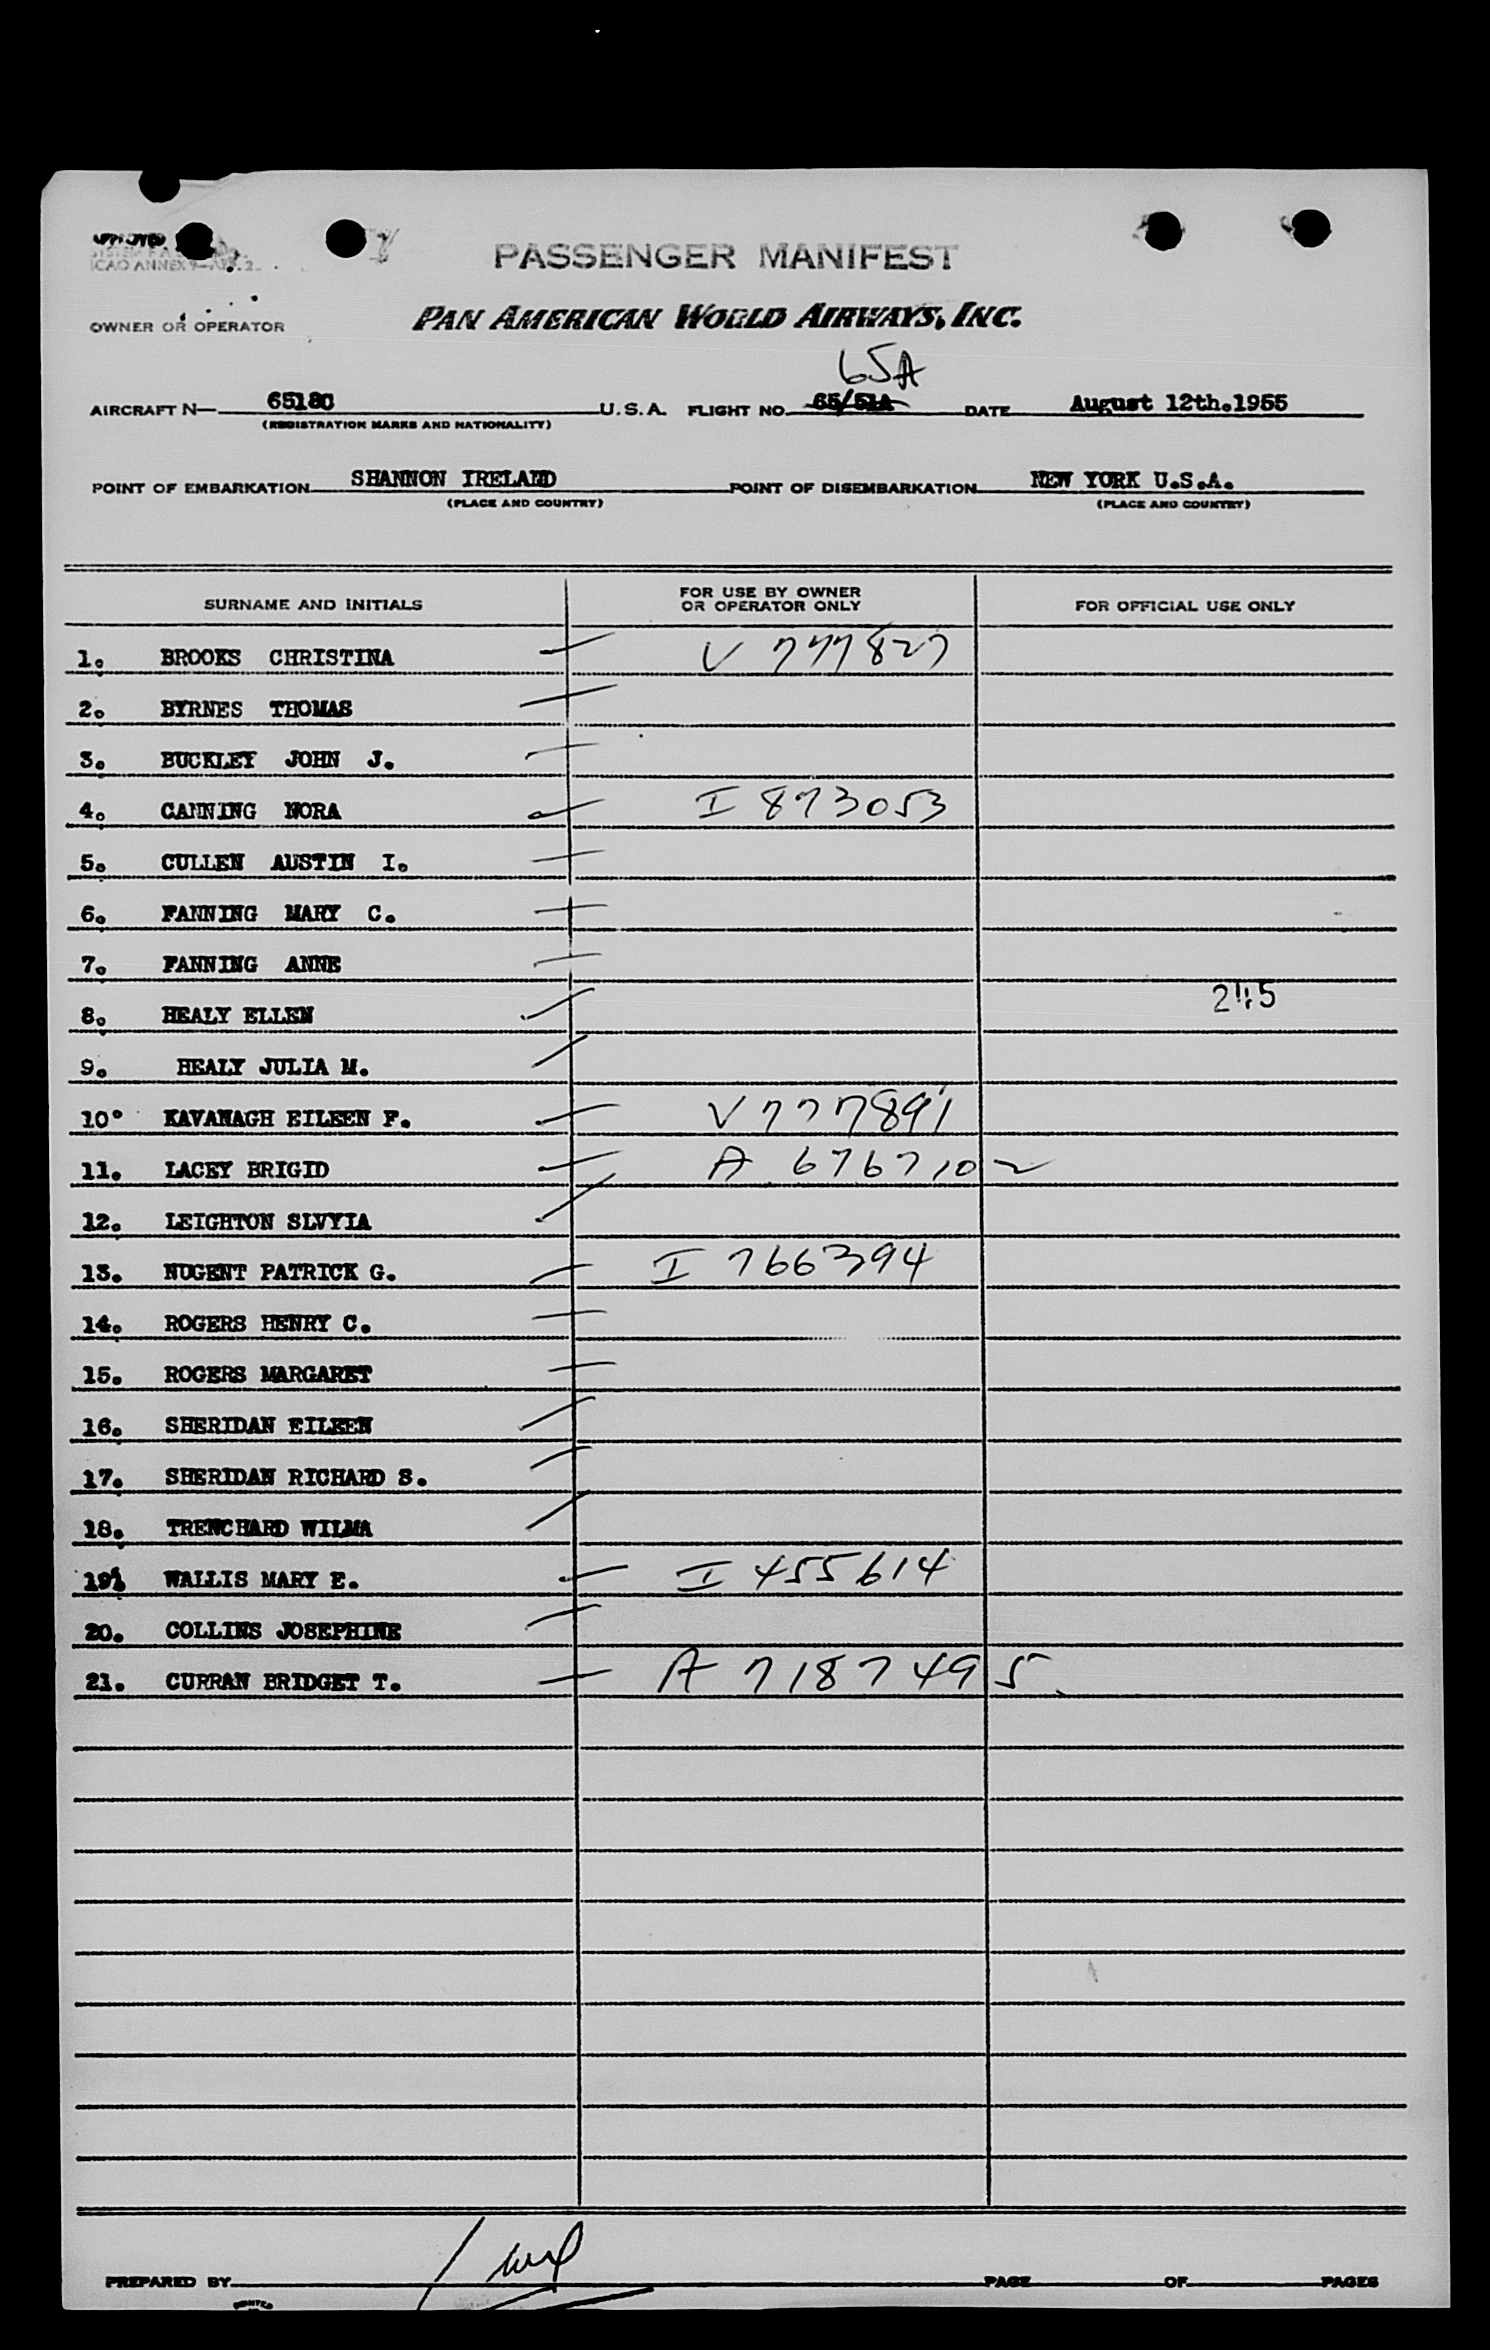 PASSENGER MANIFEST
ICAO ANNEX 9
OWNER OR OPERATOR PAN AMERICAN WORLD AIRWAYS, INC.
65A
AIRCRAFT N— 65180 U.S.A. FLIGHT NO. 65/51A DATE August 12th.1955
(REGISTRATION MARKS AND NATIONALITY)
POINT OF EMBARKATION SHANNON IRELAND POINT OF DISEMBARKATION NEW YORK U.S.A.
(PLACE AND COUNTRY) (PLACE AND COUNTRY)
SURNAME AND INITIALS FOR USE BY OWNER OR OPERATOR ONLY FOR OFFICIAL USE ONLY
1. BROOKS CHRISTINA V 777827
2. BYRNES THOMAS
3. BUCKLEY JOHN J.
4. CANNING NORA I 873053
5. CULLEN AUSTIN I.
6. FANNING MARY C.
7. FANNING ANNE
8. HEALY ELLEN 245
9. HEALY JULIA M.
10. KAVANAGH EILEEN F. V777891
11. LACEY BRIGID A 6767102
12. LEIGHTON SLVYIA
13. NUGENT PATRICK G. I 766394
14. ROGERS HENRY C.
15. ROGERS MARGARET
16. SHERIDAN EILEEN
17. SHERIDAN RICHARD S.
18. TRENCHARD WILMA
19. WALLIS MARY E. I 455614
20. COLLINS JOSEPHINE
21. CURRAN BRIDGET T. A 7187495
PREPARED BY PAGE OF PAGES